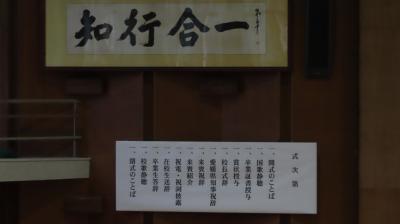 知行合一
式次第
一、開式のことば
一、国歌静聴
一、卒業証書授与
一、賞状授与
一、校長式辞
一、愛媛県知事祝辞
一、来賓祝辞
一、来賓紹介
一、祝電・祝詞披露
一、在校生送辞
一、卒業生答辞
一、校歌静聴
一、閉式のことば